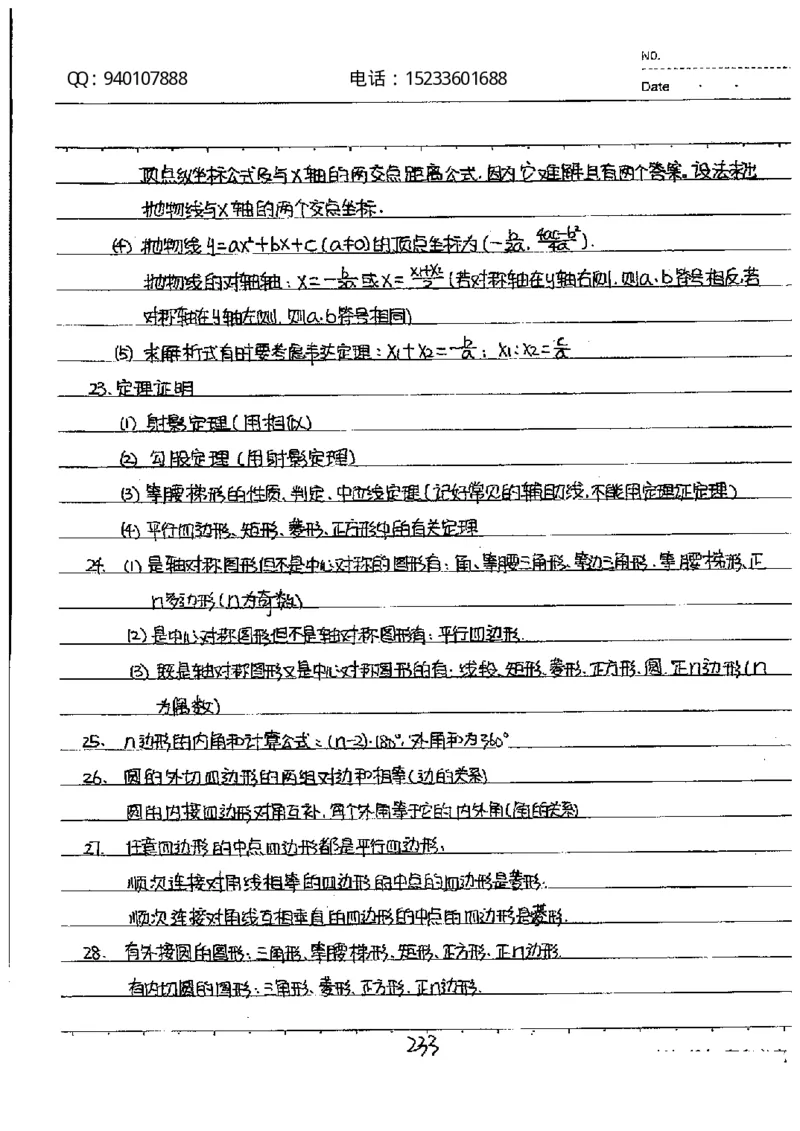 NO.
QQ：940107888 电话：15233601688
Date
顶点纵坐标公式及与X轴的两交点距离公式.因为它难解且有两个答案。设法求出
抛物线与X轴的两个交点坐标.
(4) 抛物线y=ax²+bx+c(a≠0)的顶点坐标为(-b/2a, 4ac-b²/4a).
抛物线的对轴轴：X=-b/2a或X=X₁+X₂/2(若对称轴在y轴右侧.则a、b符号相反,若
对称轴在y轴左侧,则a.b符号相同)
(5) 求解析式有时要考虑韦达定理：X₁+X₂=-b/a；X₁·X₂=c/a
23.定理证明
(1) 射影定理(用相似)
(2) 勾股定理(用射影定理)
(3)等腰梯形的性质、判定、中位线定理(记好常见的辅助线,不能用定理证定理)
(4)平行四边形、矩形、菱形、正方形中的有关定理
24. (1)是轴对称图形但不是中心对称的图形有：角、等腰三角形、等边三角形.等腰梯形、正
n多边形(n为奇数)
(2)是中心对称图形但不是轴对称图形有：平行四边形.
(3) 既是轴对称图形又是中心对称图形的有：线段、矩形、菱形、正方形、圆.正n边形(n
为偶数)
25、 n边形的内角和计算公式：(n-2)·180°,外角和为360°
26、 圆的外切四边形的两组对边和相等(边的关系)
圆的内接四边形对角互补,每个外角等于它的内外角(角的关系)
27. 任意四边形的中点四边形都是平行四边形,
顺次连接对角线相等的四边形的中点的四边形是菱形.
顺次连接对角线互相垂直的四边形的中点的四边形是菱形.
28、 有外接圆的图形：三角形、等腰梯形、矩形、正方形.正n边形
有内切圆的图形：三角形、菱形、正方形.正n边形.
233